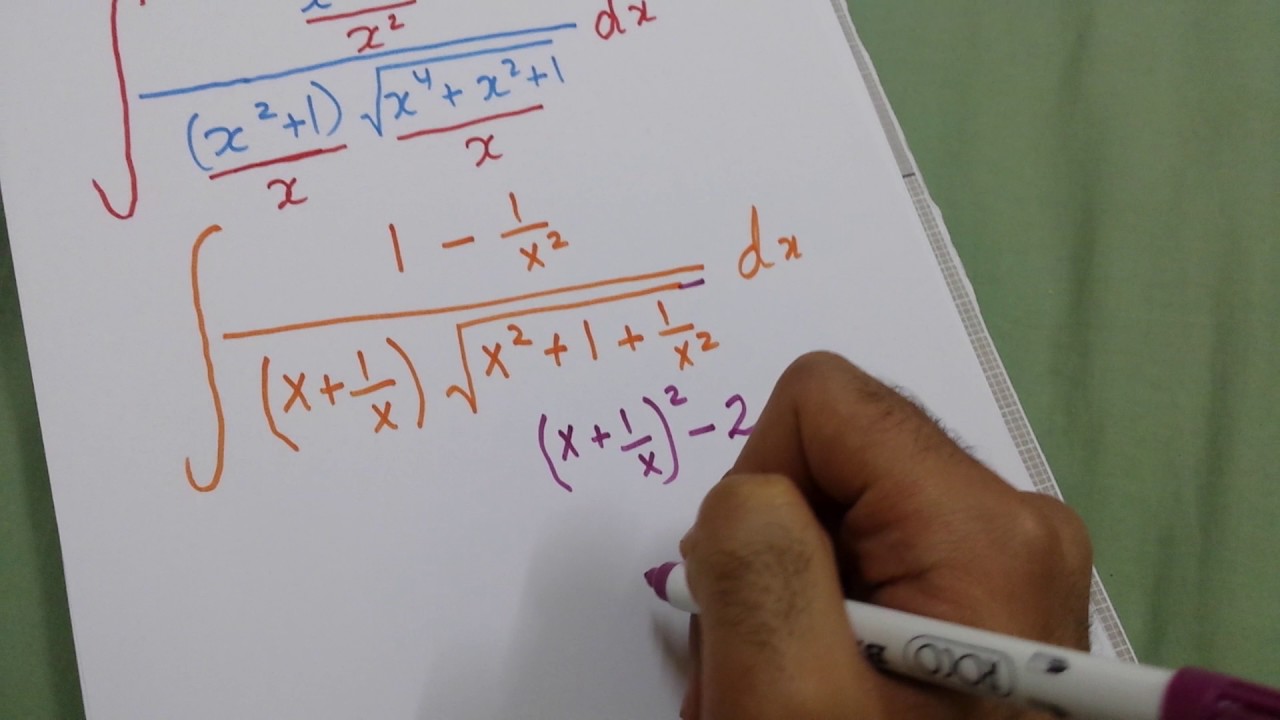 ∫ x² / ((x²+1)/x · √(x⁴ + x² + 1)/x) dx
∫ (1 - 1/x²) / ((x + 1/x) √(x² + 1 + 1/x²)) dx
(x + 1/x)² - 2